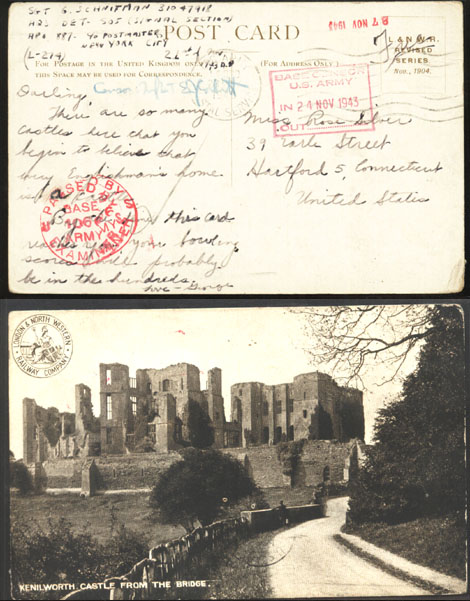 SGT G. SCHNITMAN 31047418
HQS DET- SOS (SIGNAL SECTION)
APO 887. % POSTMASTER,
NEW YORK CITY
(L-214)
22nd Nov.
1943
POST CARD
87 NOV 1943
L & N.W.R.
REVISED
SERIES
Nov., 1904.
For Postage in the United Kingdom only
this Space may be used for Correspondence.
(For Address Only.)
BASE CENSOR
U.S. ARMY
IN 24 NOV 1943
OUT
Darling,
There are so many
castles here that you
begin to believe that
every Englishman's home
is a
By the time this card
reaches you your bowling
scores will probably
be in the hundreds.
Love - George
PASSED BY
BASE
ARMY
EXAMINER
Miss Rose Silver
39 Earle Street
Hartford 5, Connecticut
United States
LONDON & NORTH WESTERN
RAILWAY COMPANY
KENILWORTH CASTLE FROM THE BRIDGE.